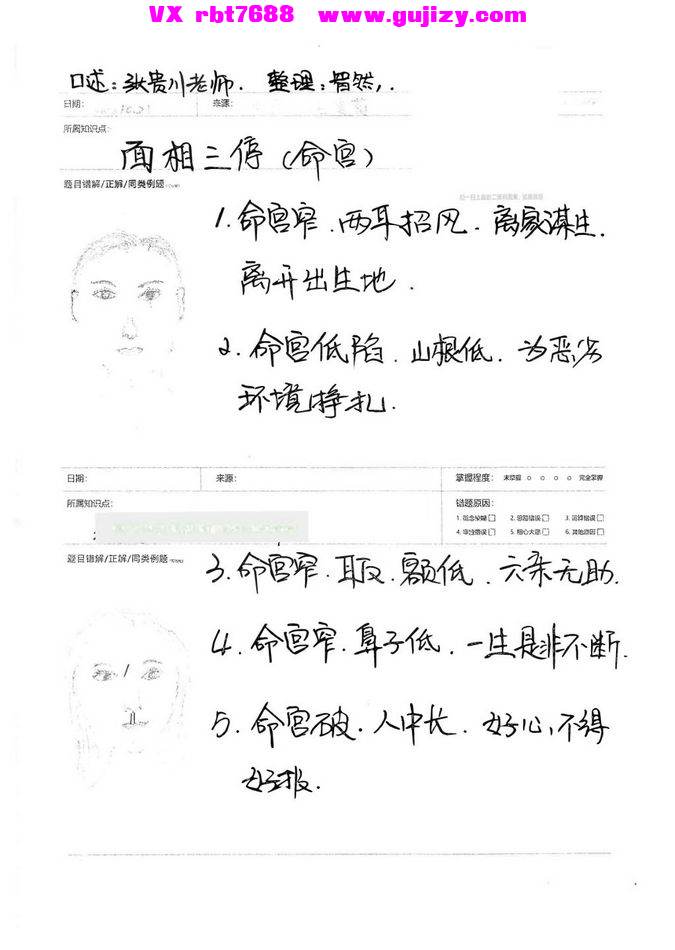 VX rbt7688 www.gujizy.com
口述：张贵川老师. 整理：智然，.
日期： 来源：
所属知识点：
面相三停（命宫）
题目错解/正解/同类例题
1. 命宫窄. 两耳招风. 离家谋生.
离开出生地.
2. 命宫低陷. 山根低. 为恶劣
环境挣扎.
日期： 来源： 掌握程度： 未掌握 ○ ○ ○ ○ 完全掌握
所属知识点： 错题原因：
1. 概念模糊 □ 2. 思路错误 □ 3. 运算错误 □
4. 审题错误 □ 5. 粗心大意 □ 6. 其他原因 □
题目错解/正解/同类例题
3. 命宫窄. 耳反. 额低. 六亲无助.
4. 命宫窄. 鼻子低. 一生是非不断.
5. 命宫破. 人中长. 好心，不得
好报.